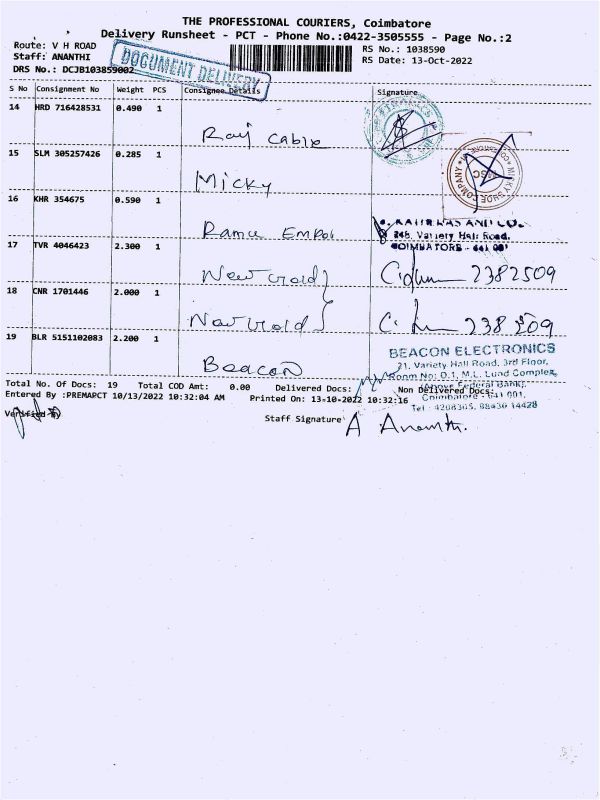 THE PROFESSIONAL COURIERS, Coimbatore
Delivery Runsheet - PCT - Phone No.:0422-3505555 - Page No.:2
Route: V H ROAD
RS No.: 1038590
Staff: ANANTHI
RS Date: 13-Oct-2022
DRS No.: DCJB103859002
DOCUMENT DELIVERY
S No Consignment No Weight PCS Consignee Details Signature
14 HRD 716428531 0.490 1
Raj Cable
15 SLM 305257426 0.285 1
MICKY SHOE COMPANY
Micky
16 KHR 354675 0.590 1
AND CO.
Ramu
248, Variety Hall Road,
17 TVR 4046423 2.300 1
COIMBATORE - 641 001
2382509
18 CNR 1701446 2.000 1
19 BLR 5151102083 2.200 1
BEACON ELECTRONICS
21, Variety Hall Road, 3rd Floor,
Beacon
Room No: 0.1, M.L. Lund Complex,
Total No. Of Docs: 19 Total COD Amt: 0.00 Delivered Docs: Non Delivered Docs:
(Above Federal Bank),
Entered By :PREMAPCT 10/13/2022 10:32:04 AM Printed On: 13-10-2022 10:32:16
Coimbatore - 641 001.
Verified By
Staff Signature
A Ananthi.